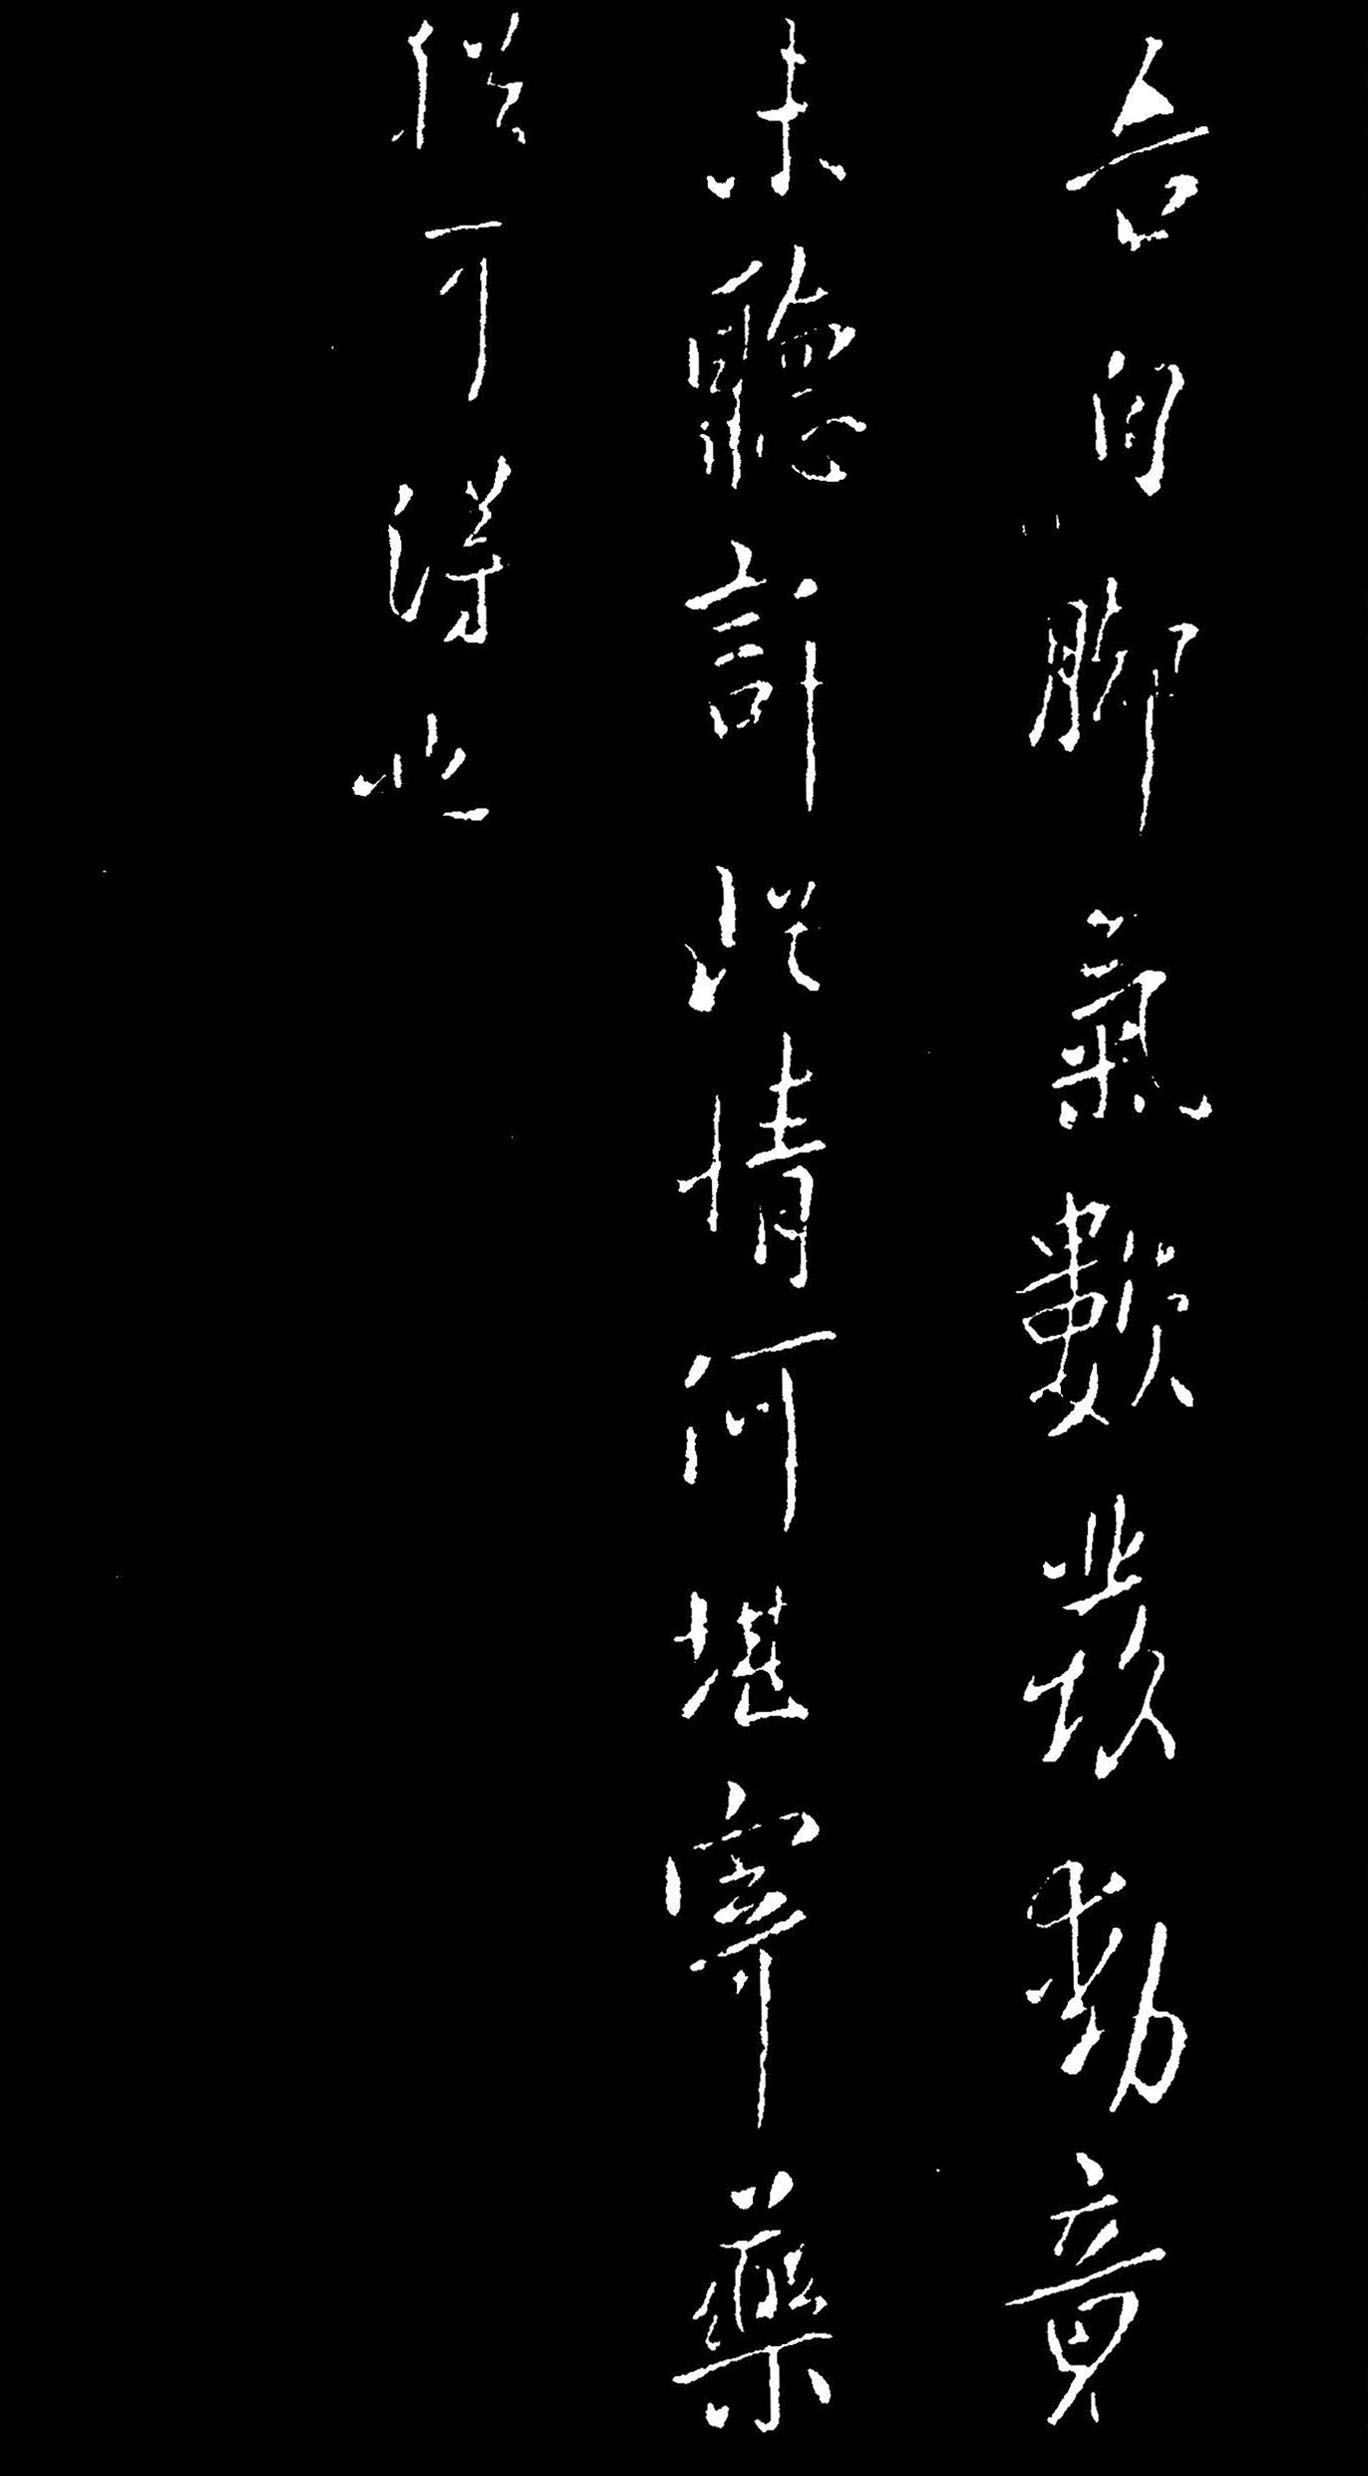 吾自脚氣數發動竟
未聽許此情何堪寄藥
猶可得也